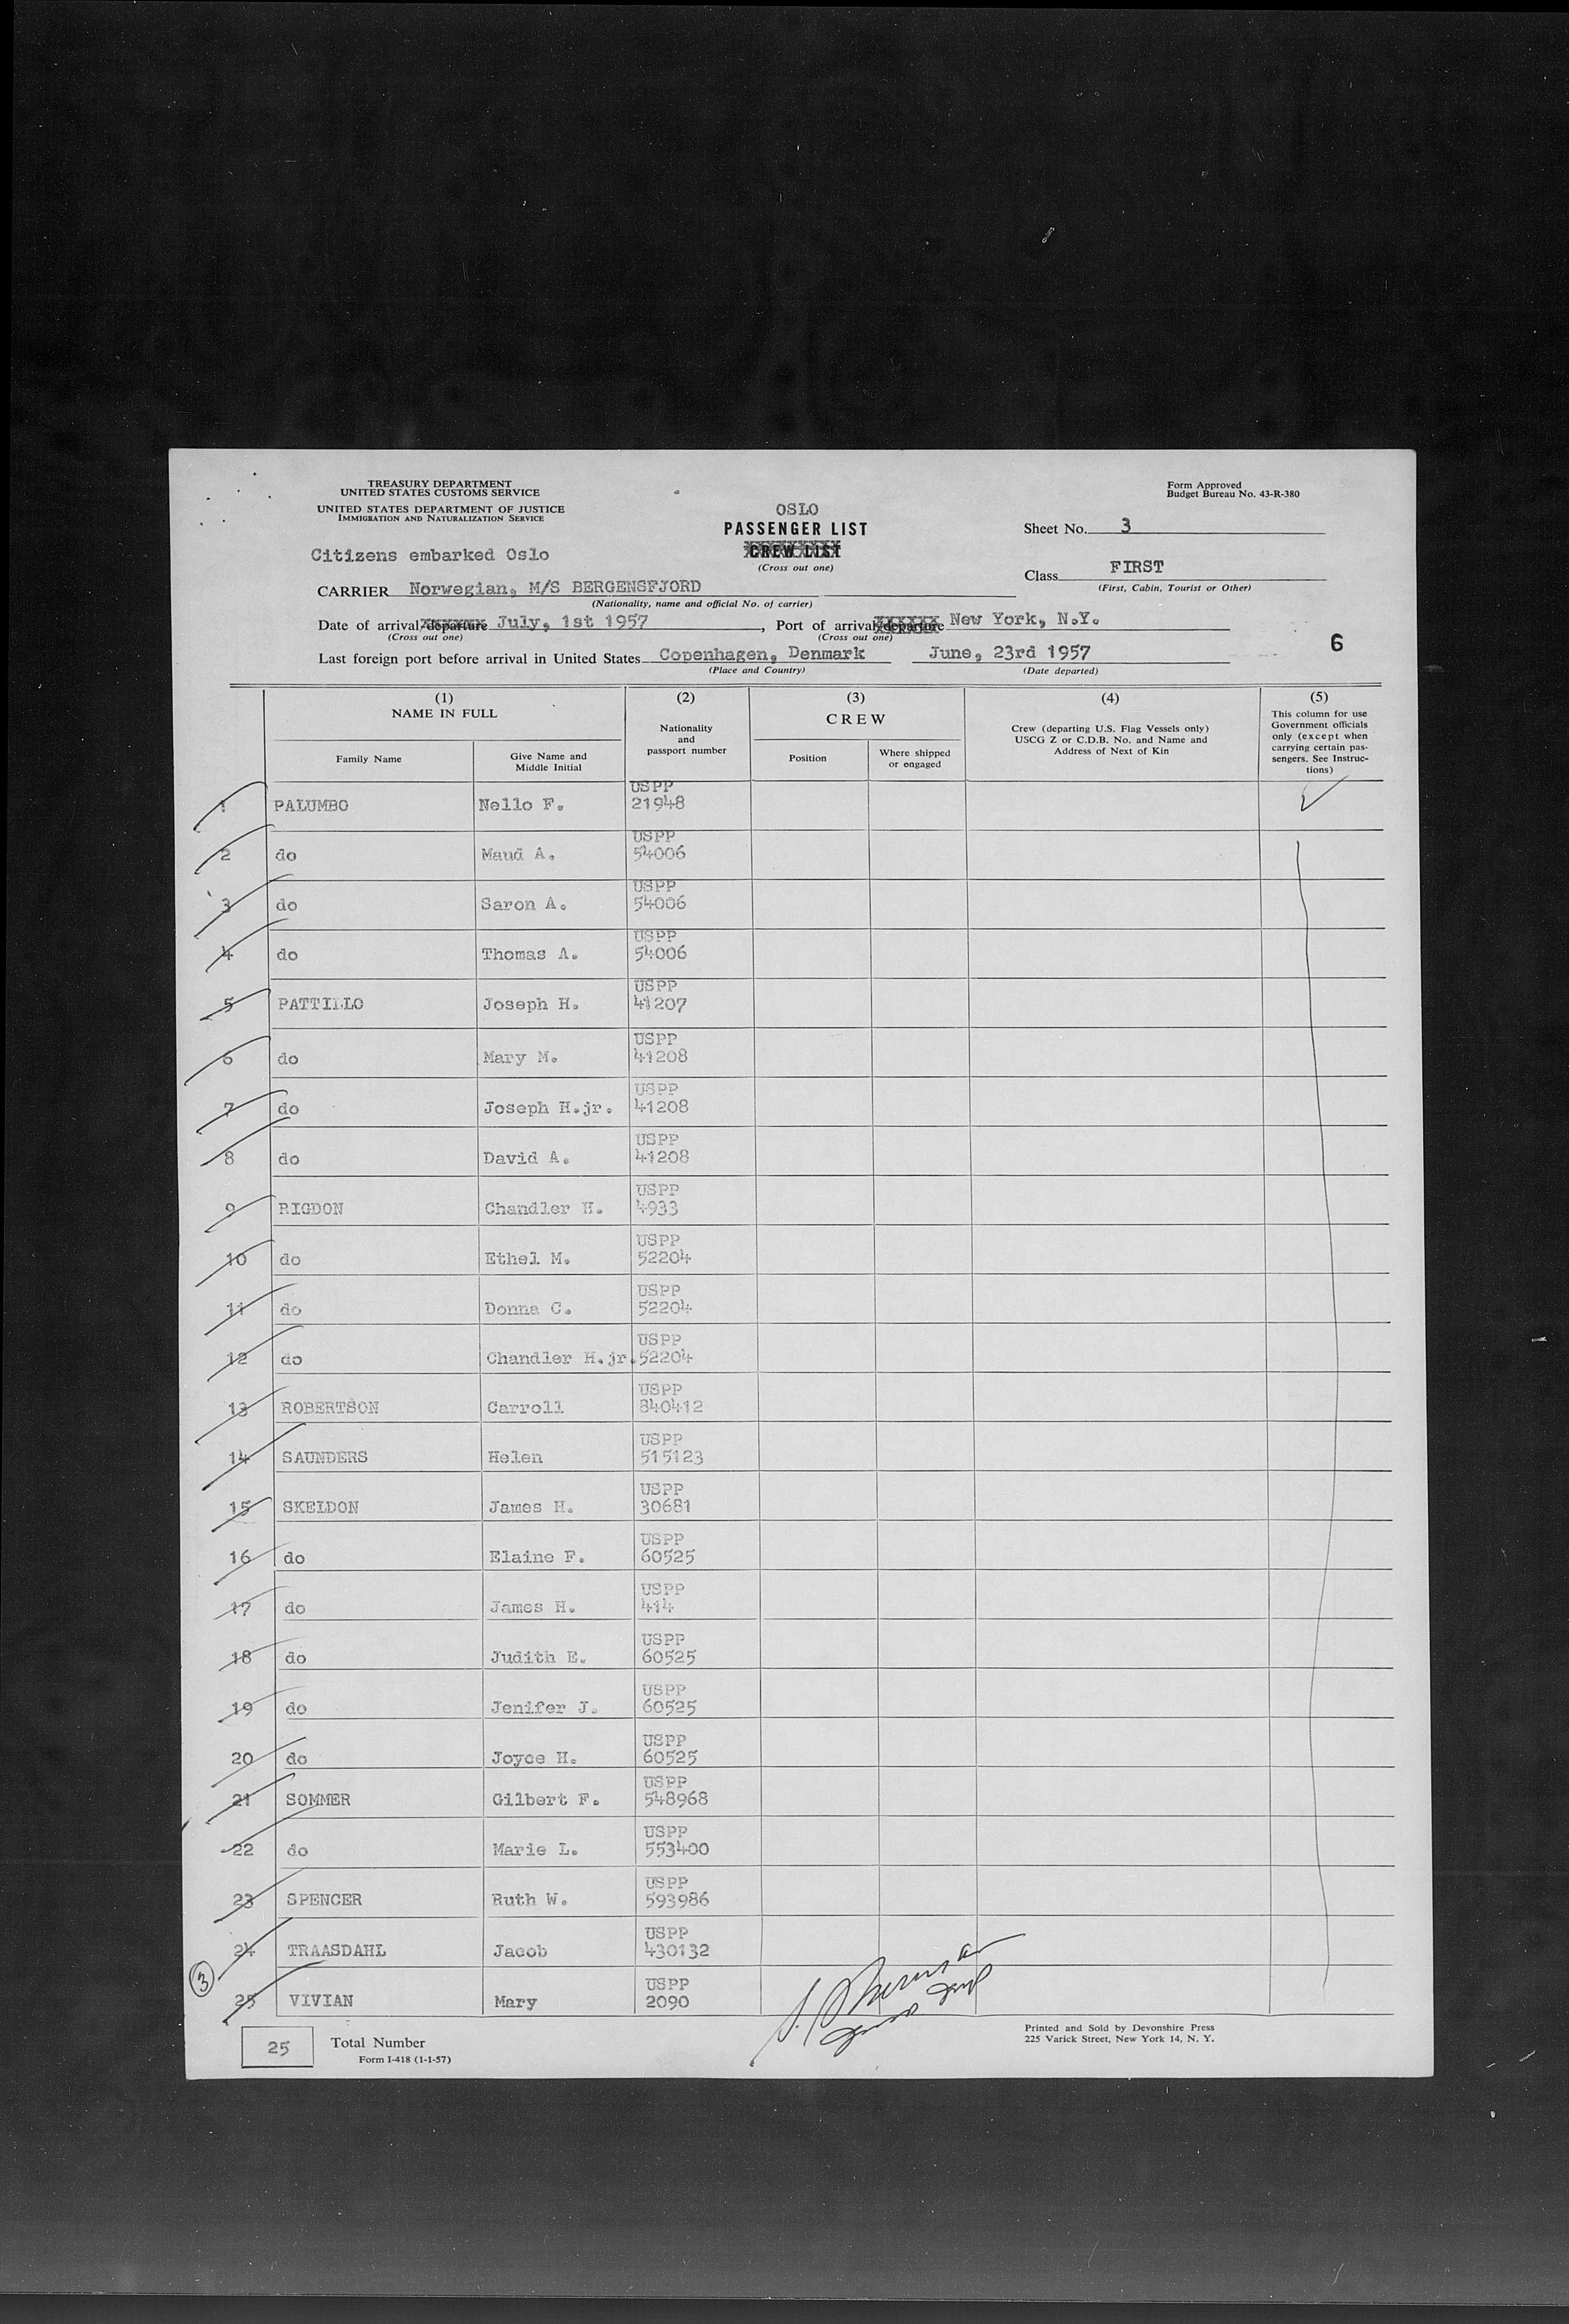 TREASURY DEPARTMENT
UNITED STATES CUSTOMS SERVICE
UNITED STATES DEPARTMENT OF JUSTICE
IMMIGRATION AND NATURALIZATION SERVICE
Form Approved
Budget Bureau No. 43-R-380
OSLO
PASSENGER LIST
CREW LIST
(Cross out one)
Sheet No. 3
Citizens embarked Oslo
Class FIRST
(First, Cabin, Tourist or Other)
CARRIER Norwegian, M/S BERGENSFJORD
(Nationality, name and official No. of carrier)
Date of arrival/departure July, 1st 1957, Port of arrival/departure New York, N.Y.
(Cross out one) (Cross out one)
6
Last foreign port before arrival in United States Copenhagen, Denmark June, 23rd 1957
(Place and Country) (Date departed)
(1) (2) (3) (4) (5)
NAME IN FULL
Family Name
Give Name and
Middle Initial
Nationality
and
passport number
CREW
Position
Where shipped
or engaged
Crew (departing U.S. Flag Vessels only)
USCG Z or C.D.B. No. and Name and
Address of Next of Kin
This column for use
Government officials
only (except when
carrying certain pas-
sengers. See Instruc-
tions)
USPP
1 PALUMBO Nello F. 21948
USPP
2 do Maud A. 54006
USPP
3 do Saron A. 54006
USPP
4 do Thomas A. 54006
USPP
5 PATTILLO Joseph H. 41207
USPP
6 do Mary M. 41208
USPP
7 do Joseph H.jr. 41208
USPP
8 do David A. 41208
USPP
9 RIGDON Chandler H. 4933
USPP
10 do Ethel M. 52204
USPP
11 do Donna C. 52204
USPP
12 do Chandler H.jr. 52204
USPP
13 ROBERTSON Carroll 840412
USPP
14 SAUNDERS Helen 515123
USPP
15 SKELDON James H. 30681
USPP
16 do Elaine F. 60525
USPP
17 do James H. 414
USPP
18 do Judith E. 60525
USPP
19 do Jenifer J. 60525
USPP
20 do Joyce H. 60525
USPP
21 SOMMER Gilbert F. 548968
USPP
22 do Marie L. 553400
USPP
23 SPENCER Ruth W. 593986
USPP
24 TRAASDAHL Jacob 430132
3
USPP
25 VIVIAN Mary 2090
25 Total Number
Form I-418 (1-1-57)
Printed and Sold by Devonshire Press
225 Varick Street, New York 14, N. Y.